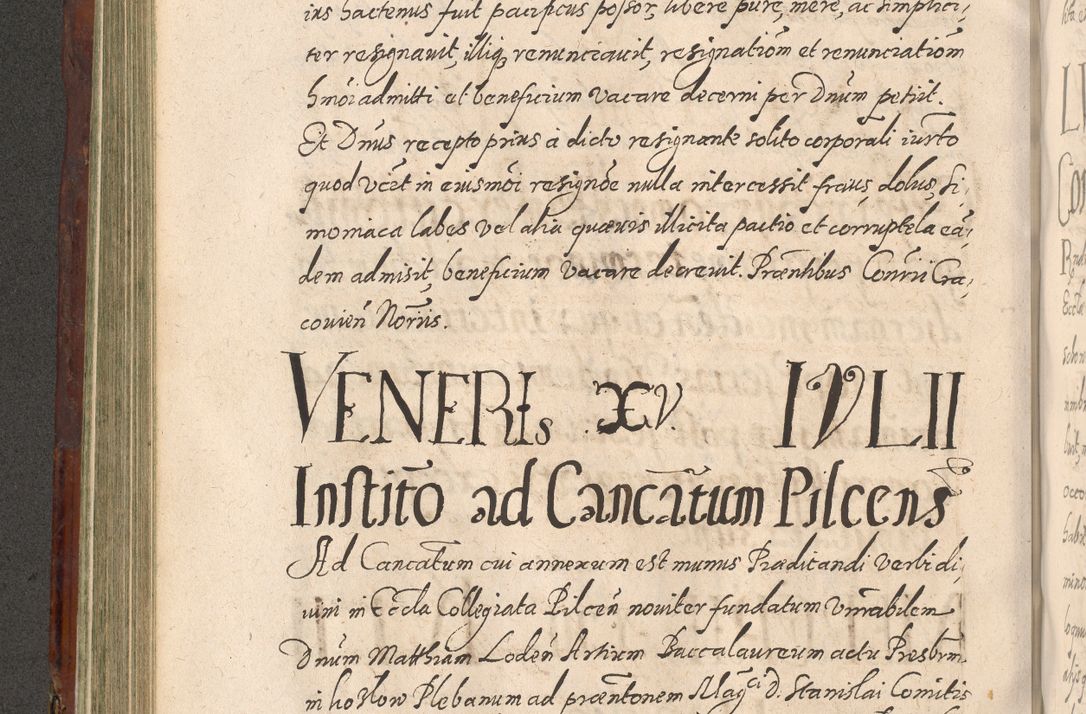 ius hactenus fuit pacificus possor, libere pure, mere, ac simplici,
ter resignavit, illiq, renunciavit, resignatiom̃ et renunciatiom̃
hmōi admitti et beneficium vacare decerni per Dnum petiit.
Et Dnus recepto prius à dicto resignante solito corporali iurto
quod vczt in eiusmōi resignōe nulla intercessit fraus, dolus, si,
moniaca labes vel alia quævis illicita pactio et corruptela eā,
dem admisit, beneficium vacare decrevit. Præntibus Conrii Cra,
covien̄ Norriis.
VENERIs XV. IVLII
Institõ ad Cancātum Pilcens
Ad Cancātum cui annexum est munus Prædicandi verbi di,
uini in Eccla Collegiata Pilcen̄ noviter fundatum Vnrabilem
Dnum Matthiam Loden̄ Artium Baccalaureum actu Presbrm
in Plebanum ad præntonem Magci D. Stanislai Comitis